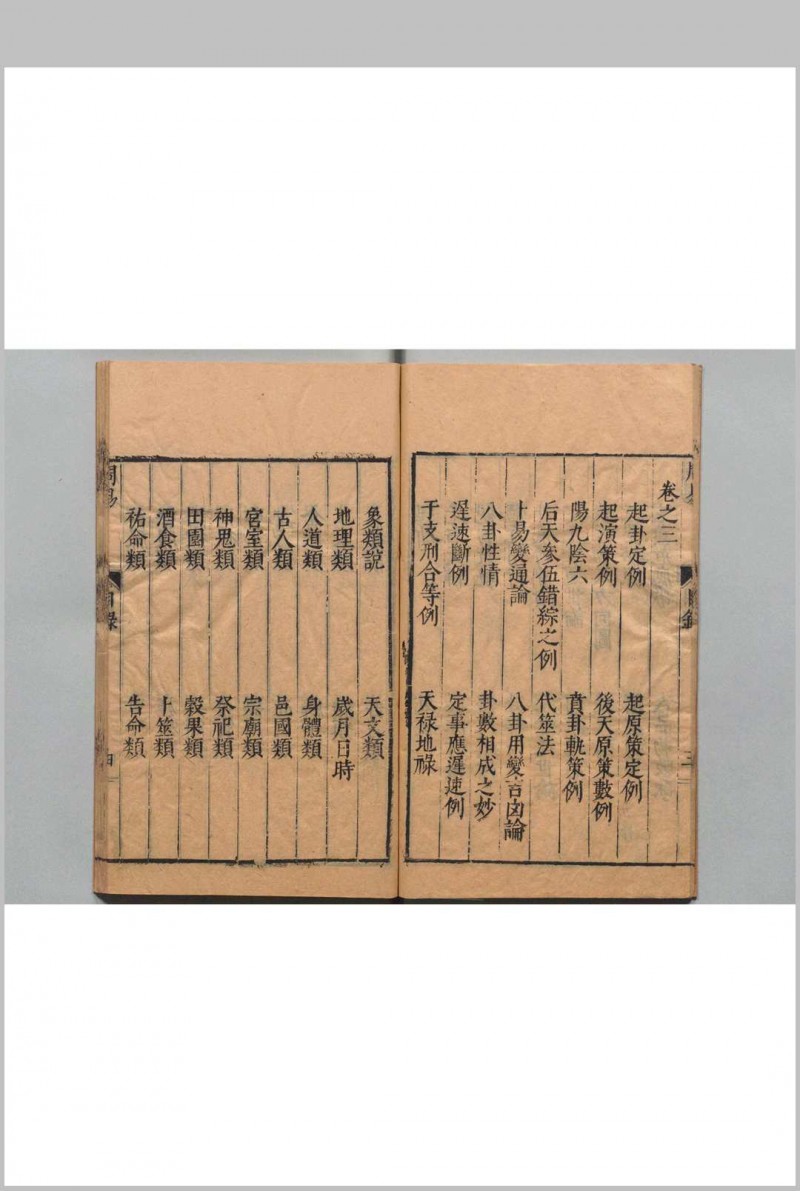 卷之三
起卦定例 起原策定例
起演策例 後天原策數例
陽九陰六 賁卦軌策例
后天參伍錯綜之例 代筮法
卜易變通論 八卦用變吉凶論
八卦性情 卦數相成之妙
遲速斷例 定事應遲速例
干支刑合等例 天禄地祿
象類說 天文類
地理類 歲月日時
人道類 身體類
古人類 邑國類
官室類 宗廟類
神鬼類 祭祀類
田園類 穀果類
酒食類 卜筮類
祐命類 告命類
周易 目錄 四
目錄 三